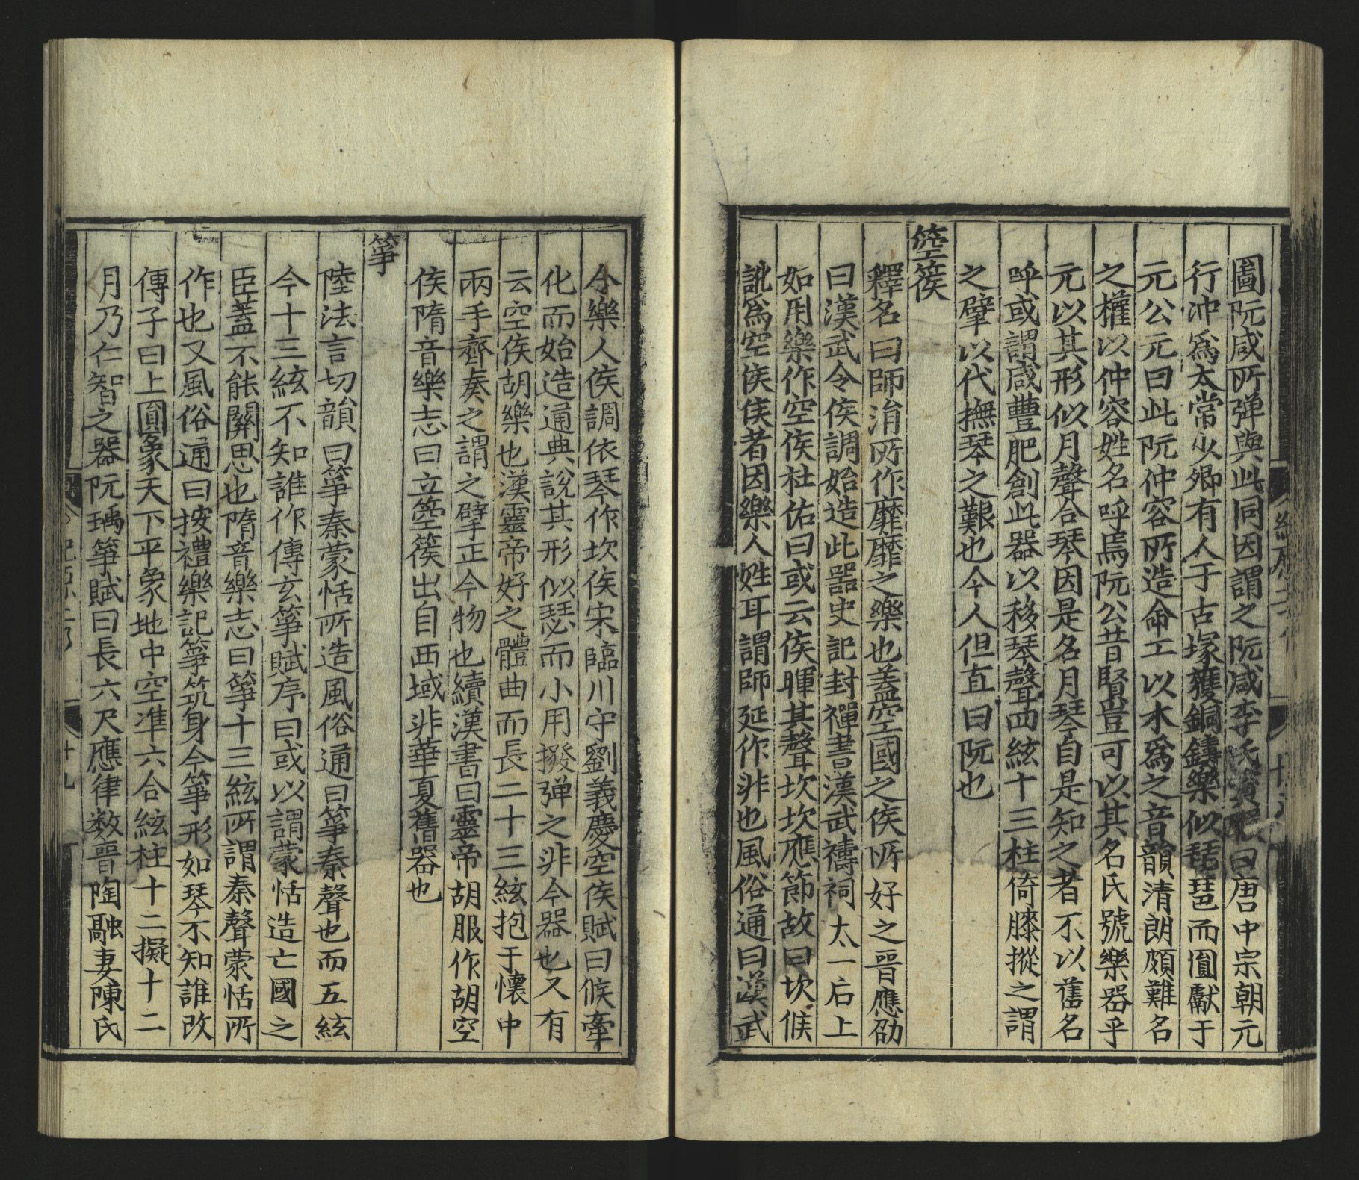 圖阮咸所弹與此同因謂之阮咸李氏資暇曰唐中宗朝元
行沖爲太常少卿有人于古塚獲銅鑄樂似琵琶而圓獻于
元公元曰此阮仲容所造命工以木爲之音韻清朗頗難名
之權以仲容姓名呼焉阮公昔賢豈可以其名氏號樂器乎
元以其形似月聲合琴因是名月琴自是知之者不以舊名
呼或謂咸豐肥創此器以移琴聲四絃十三柱倚膝摐之謂
之擘以代撫琴之艱也今人但直曰阮也
箜篌
釋名曰師涓所作靡靡之樂也蓋空國之侯所好之晉應劭
曰漢武令侯調始造此器史記封禪書漢武禱祠太一后土
如用樂作空侯杜佑曰或云侯暉其聲坎坎應節故曰坎候
訛爲空侯侯者因樂人姓耳謂師延作非也風俗通曰漢武
令樂人侯調依琴作坎侯宋臨川守劉義慶空侯賦曰候牽
化而始造通典說其形似瑟而小用撥弹之非今器也又有
云空侯胡樂也漢靈帝好之體曲而長二十三絃抱于懷中
兩手齊奏之謂之擘正今物也續漢書曰靈帝胡服作胡空
侯隋音樂志曰立箜篌出自西域非華夏舊器也
箏
陸法言切韻曰箏秦蒙恬所造風俗通曰箏秦聲也而五絃
今十三絃不知誰作傳玄箏賦序曰或以謂蒙恬造亡國之
臣蓋不能關思也隋音樂志曰箏十三絃所謂秦聲蒙恬所
作也又風俗通曰按禮樂記箏筑身今箏形如琴不知誰改
傳子曰上圓象天下平象地中空准六合絃柱十二擬十二
月乃仁智之器阮瑀箏賦曰長六尺應律数晉陶融妻陳氏
十九